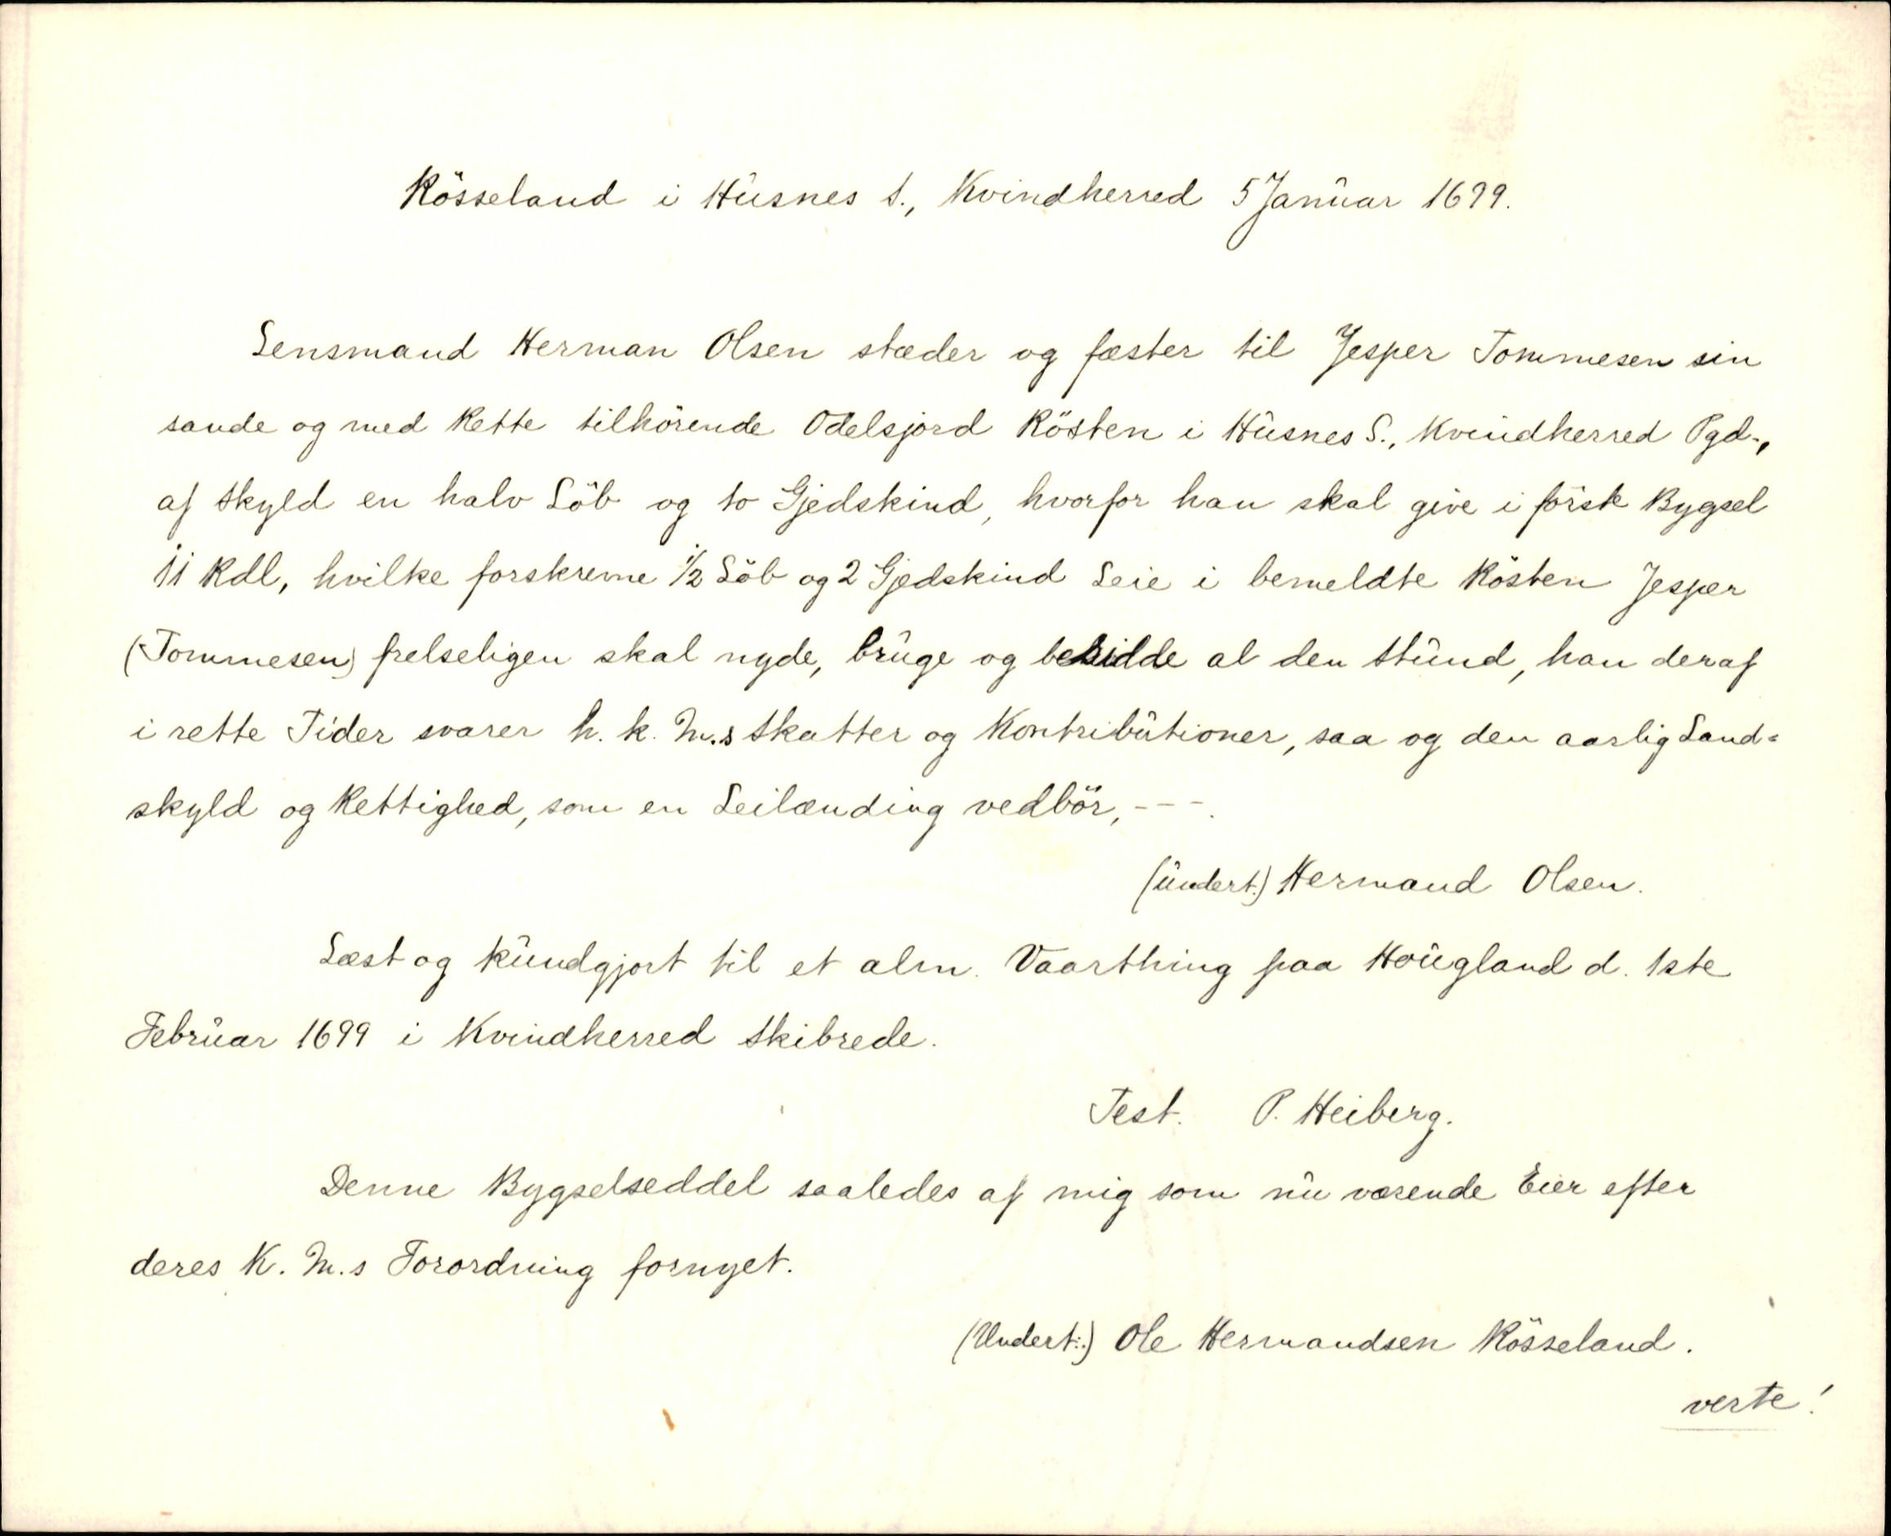 Rösseland i Husnes S., Kvindherred 5 Januar 1699.
Lensmand Herman Olsen stæder og fæster til Jesper Tommesen sin
sande og med Rette tilhörende Odelsjord Rösten i Husnes S., Kvindherred Pgd.,
af Skyld en halv Löb og to Gjedskind, hvorfor han skal give i förste Bygsel
11 Rdl, hvilke forskrevne 1/2 Löb og 2 Gjedskind Leie i bemeldte Rösten Jesper
(Tommesen) frelseligen skal nyde, bruge og beholde al den Stund, han deraf
i rette Tider svarer h. k. M.s Skatter og Kontributioner, saa og den aarlig Land=
skyld og Rettighed, som en Leilænding vedbör, - - -.
(undert.) Hermand Olsen.
Læst og kundgjort til et alm. Vaarthing paa Hougland d. 1ste
Februar 1699 i Kvindherred Skibrede.
Test. P. Heiberg.
Denne Bygselseddel saaledes af mig som nu værende Eier efter
deres K. M.s Forordning fornyet.
(Undert:.) Ole Hermandsen Rösseland.
verte!